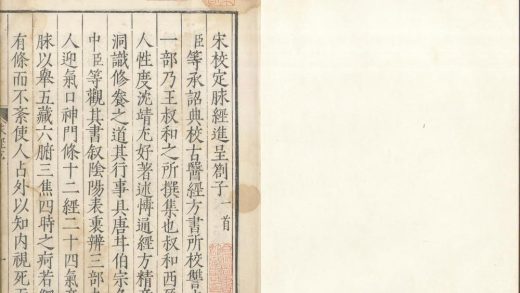 宋校定脉經進呈劄子一首
臣等承詔典校古醫經方書所校讐中
一部乃王叔和之所撰集也叔和西
人性度沈靖尤好著述博通經方精意
洞識修養之道其行事具唐甘伯宗名
中臣等觀其書叙陰陽表裏辨三部九
人迎氣口神門條十二經二十四氣奇
脉以舉五藏六腑三焦四時之痾若網
有條而不紊使人占外以知內視死